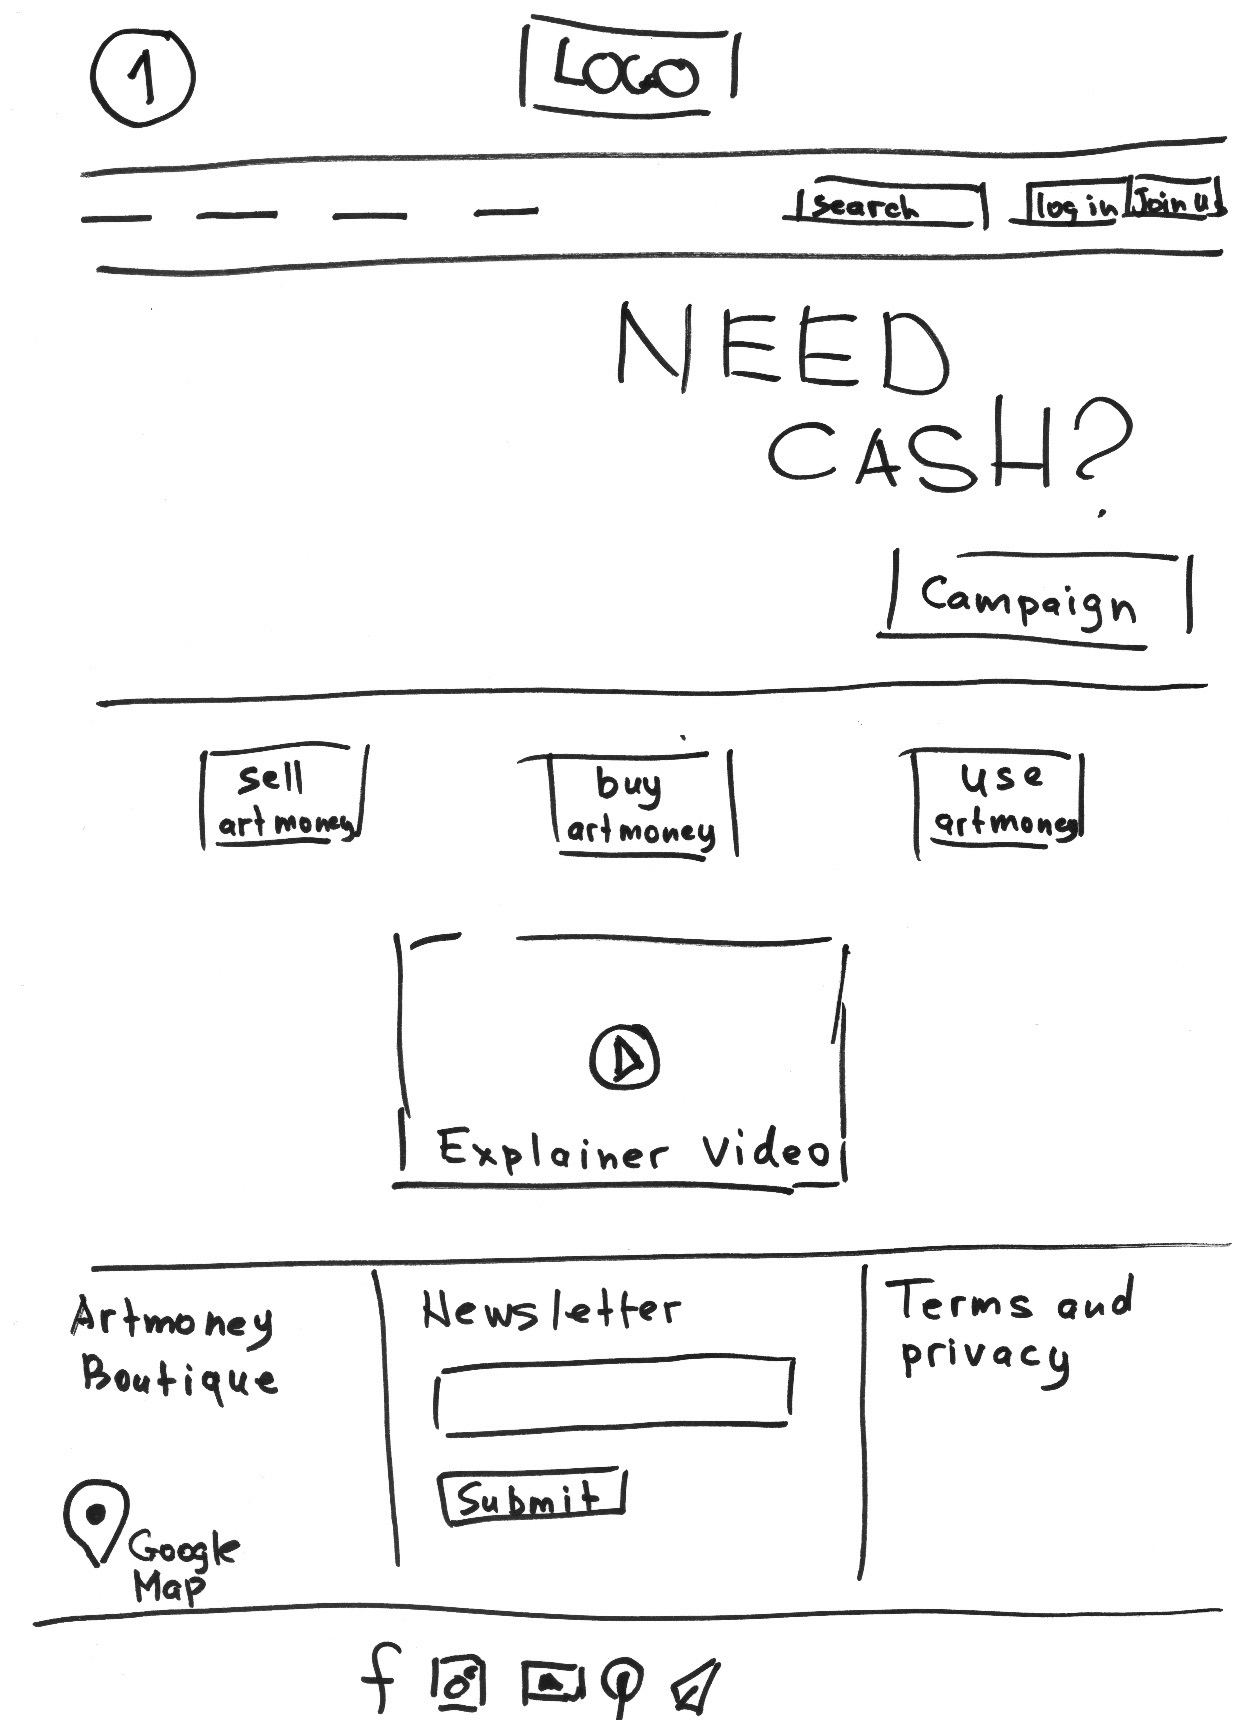 1
LOGO
search
log in
Join us
NEED
CASH?
Campaign
sell
artmoney
buy
artmoney
use
artmoney
Explainer Video
Artmoney
Boutique
Google
Map
Newsletter
Submit
Terms and
privacy
f